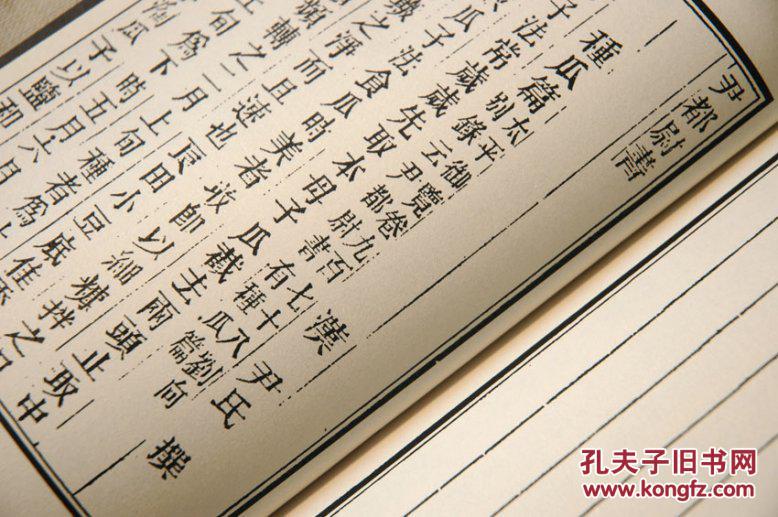 尹都尉書
漢尹氏撰
種瓜篇
太平御覽卷九百七十八劉向
別錄云尹都尉書有種瓜篇
子法常歲歲先取本母子瓜截去兩頭止取中
瓜子法食瓜時美者收即以細糠拌之
之淨而且速也良田小豆底佳
頻轉之二月上旬種者爲
上旬爲下時五月六月
淘瓜子以鹽和
孔夫子旧书网
www.kongfz.com